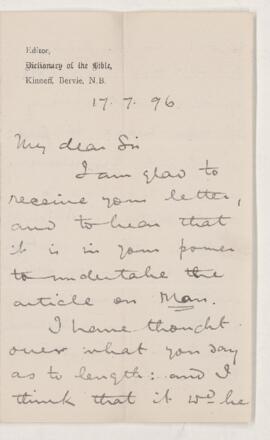 Editor,
Dictionary of the Bible,
Kinneff, Bervie, N.B.
17. 7. 96
My dear Sir
I am glad to
receive your letter,
and to hear that
it is in your power
to undertake the
article on Man.
I have thought
over what you say
as to length: and I
think that it wd be